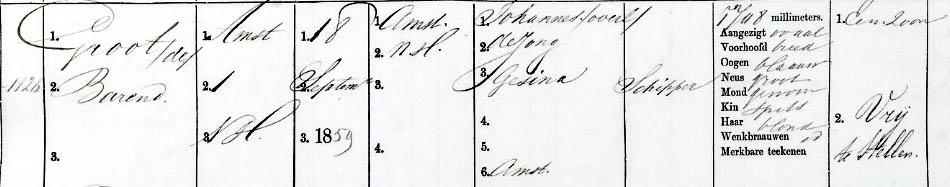 1126
1. Groot /de/
2. Barend.
3.
1. Amst
2. 1
3. NH.
1. 18
2. Septem
3. 1859
1. Amst.
2. N.H.
3.
4.
1. Johannes /overl/
2. de Jong
3. Gesina
4.
5.
6. Amst.
Schipper
millimeters.
Aangezigt ovaal
Voorhoofd breed
Oogen blaauw
Neus groot
Mond gewoon
Kin spits
Haar blond
Wenkbraauwen id
Merkbare teekenen
1. Een Zoon
2. Vrij
te stellen.